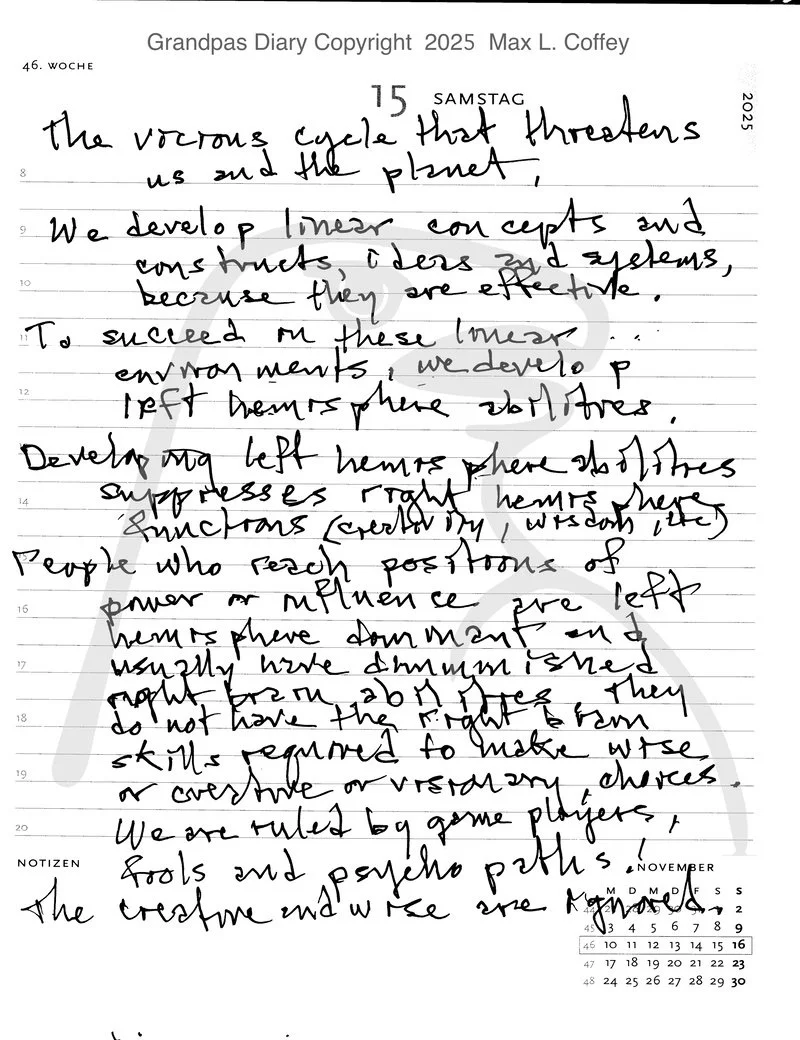 Grandpas Diary Copyright 2025 Max L. Coffey
46. WOCHE
15 SAMSTAG
2025
the vicious cycle that threatens
us and the planet,
We develop linear concepts and
constructs, ideas and systems,
because they are effective.
To succeed in these linear
environments, we develop
left hemisphere abilities.
Developing left hemisphere abilities
suppresses right hemisphere
functions (creativity, wisdom, etc)
People who reach positions of
power or influence are left
hemisphere dominant and
usually have diminished
right brain abilities. They
do not have the right brain
skills required to make wise
or creative or visionary choices.
We are ruled by game players,
fools and psychopaths!
The creative and wise are ignored.
8
9
10
11
12
14
15
16
17
18
19
20
NOTIZEN
NOVEMBER
M D M D F S S
2
45 3 4 5 6 7 8 9
46 10 11 12 13 14 15 16
47 17 18 19 20 21 22 23
48 24 25 26 27 28 29 30